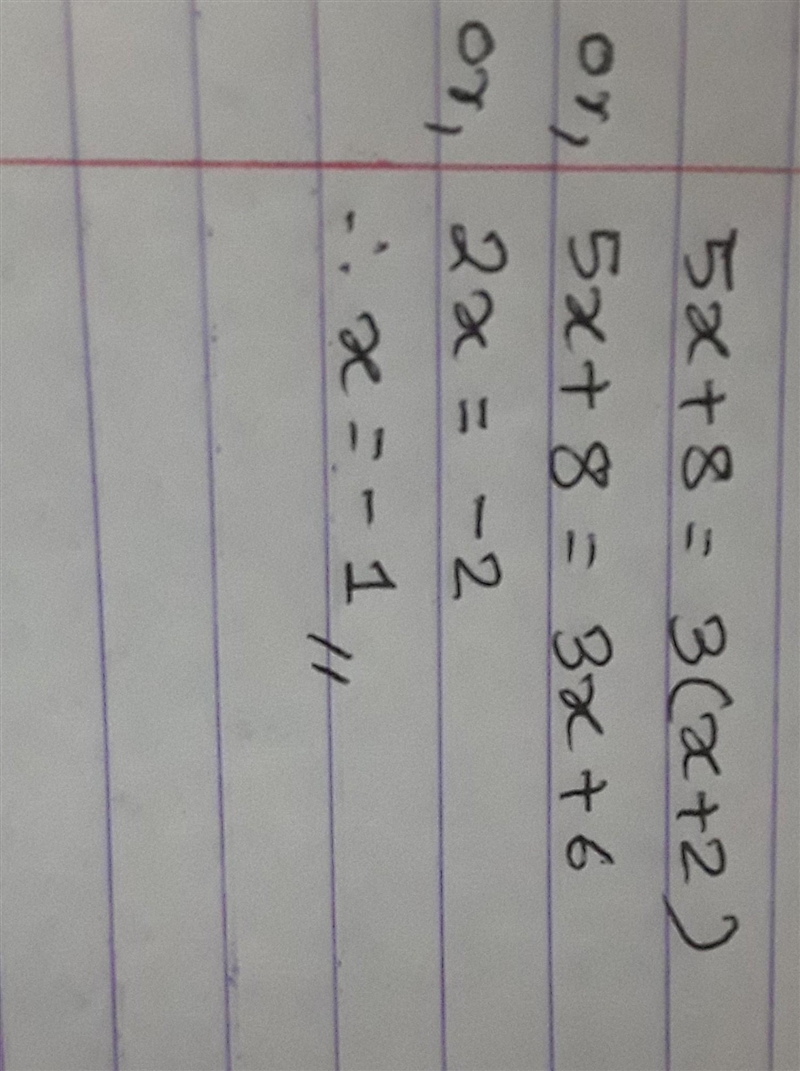 5x + 8 = 3(x+2)
or, 5x + 8 = 3x + 6
or, 2x = -2
∴ x = -1 //